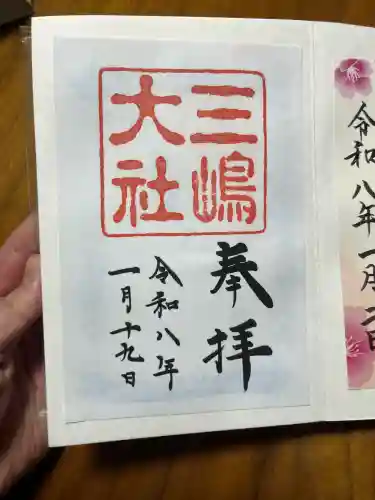 令和八年一月二日
三嶋
大社
奉拝
令和八年
一月十九日